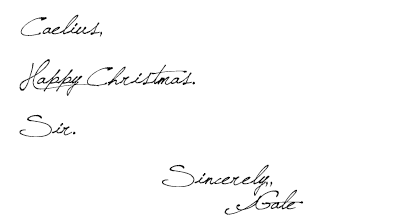 Caelius,
Happy Christmas.
Sir.
Sincerely,
Gale